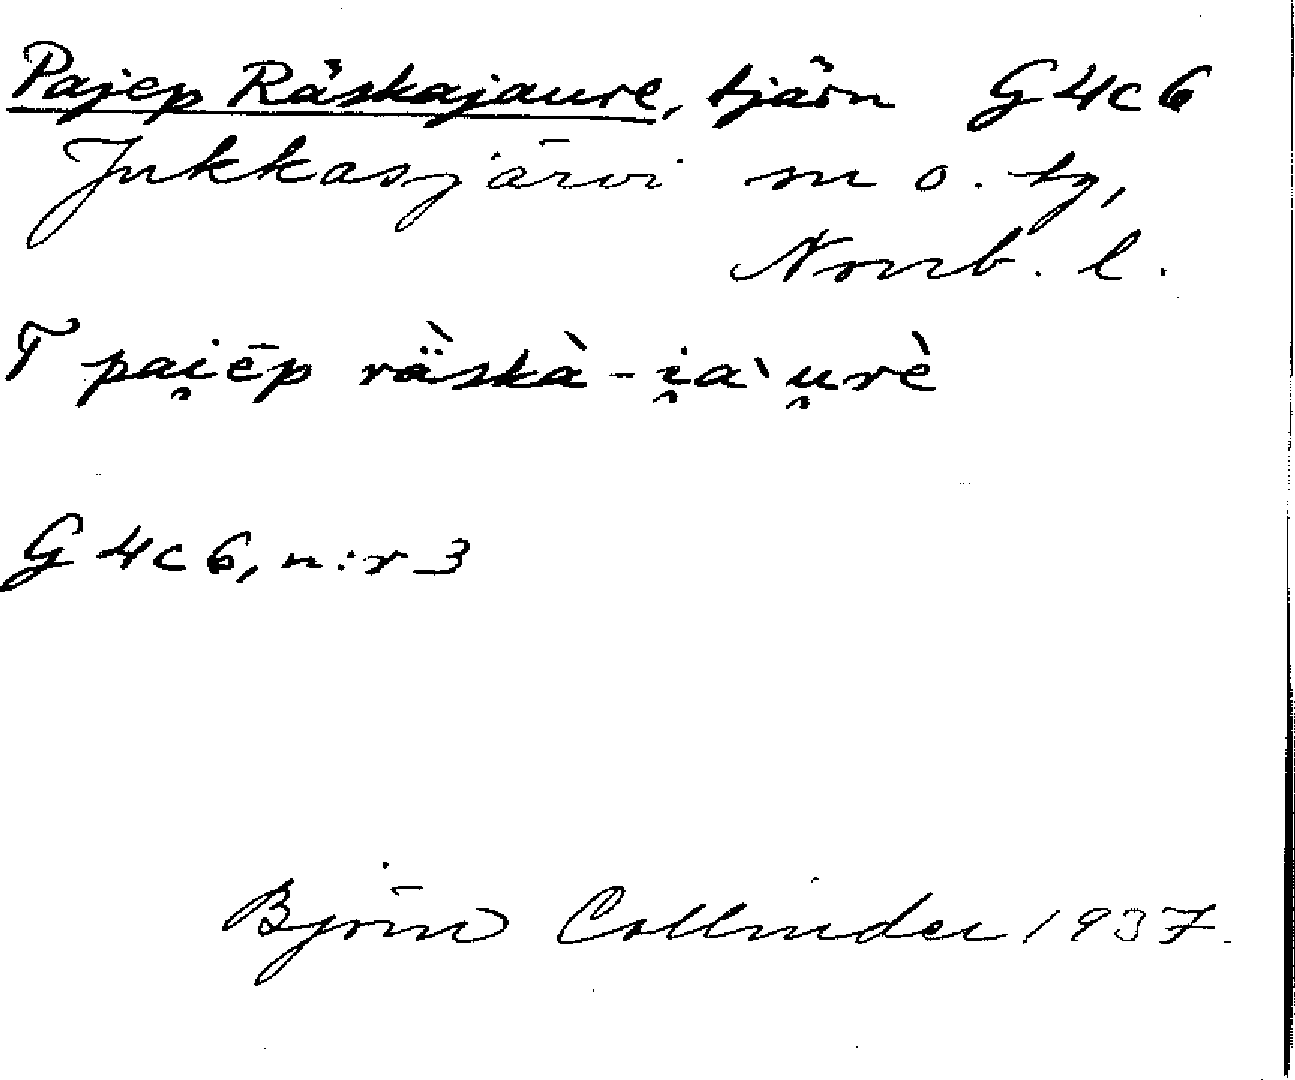 Pajep Räskajaure, tjärn G4c6
Jukkasjärvi sn o. tg,
Norrb. l.
T pai̯ēp räskà-i̯a`u̯rè
G4c6, n:r 3
Björn Collinder 1937.